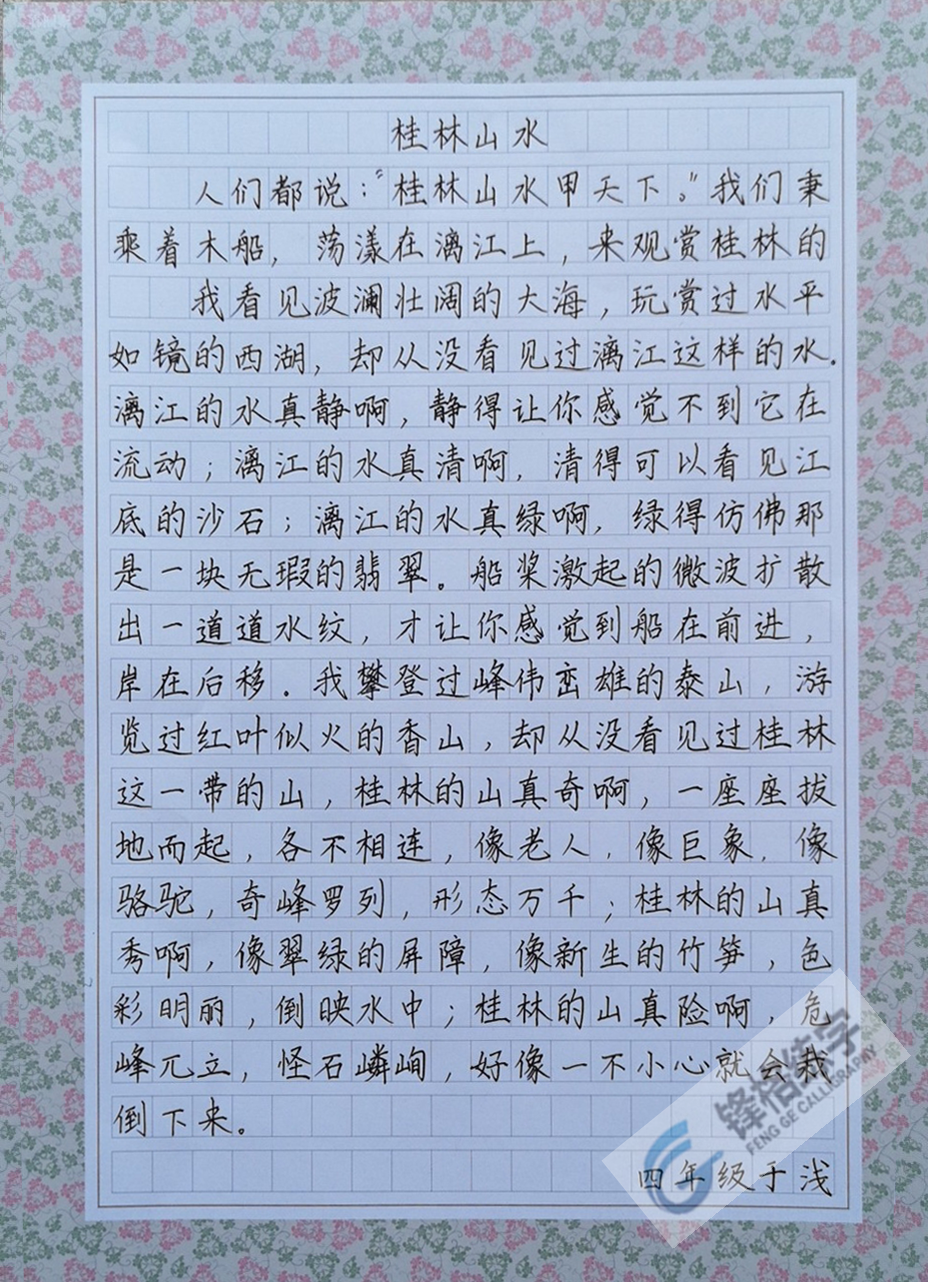 桂林山水
人们都说：“桂林山水甲天下。”我们秉
乘着木船，荡漾在漓江上，来观赏桂林的
我看见波澜壮阔的大海，玩赏过水平
如镜的西湖，却从没看见过漓江这样的水.
漓江的水真静啊，静得让你感觉不到它在
流动；漓江的水真清啊，清得可以看见江
底的沙石；漓江的水真绿啊，绿得仿佛那
是一块无瑕的翡翠。船桨激起的微波扩散
出一道道水纹，才让你感觉到船在前进，
岸在后移.我攀登过峰伟峦雄的泰山，游
览过红叶似火的香山，却从没看见过桂林
这一带的山，桂林的山真奇啊，一座座拔
地而起，各不相连，像老人，像巨象，像
骆驼，奇峰罗列，形态万千；桂林的山真
秀啊，像翠绿的屏障，像新生的竹笋，色
彩明丽，倒映水中；桂林的山真险啊，危
峰兀立，怪石嶙峋，好像一不小心就会栽
倒下来。
四年级于浅
锋格练字
FENG GE CALLIGRAPHY